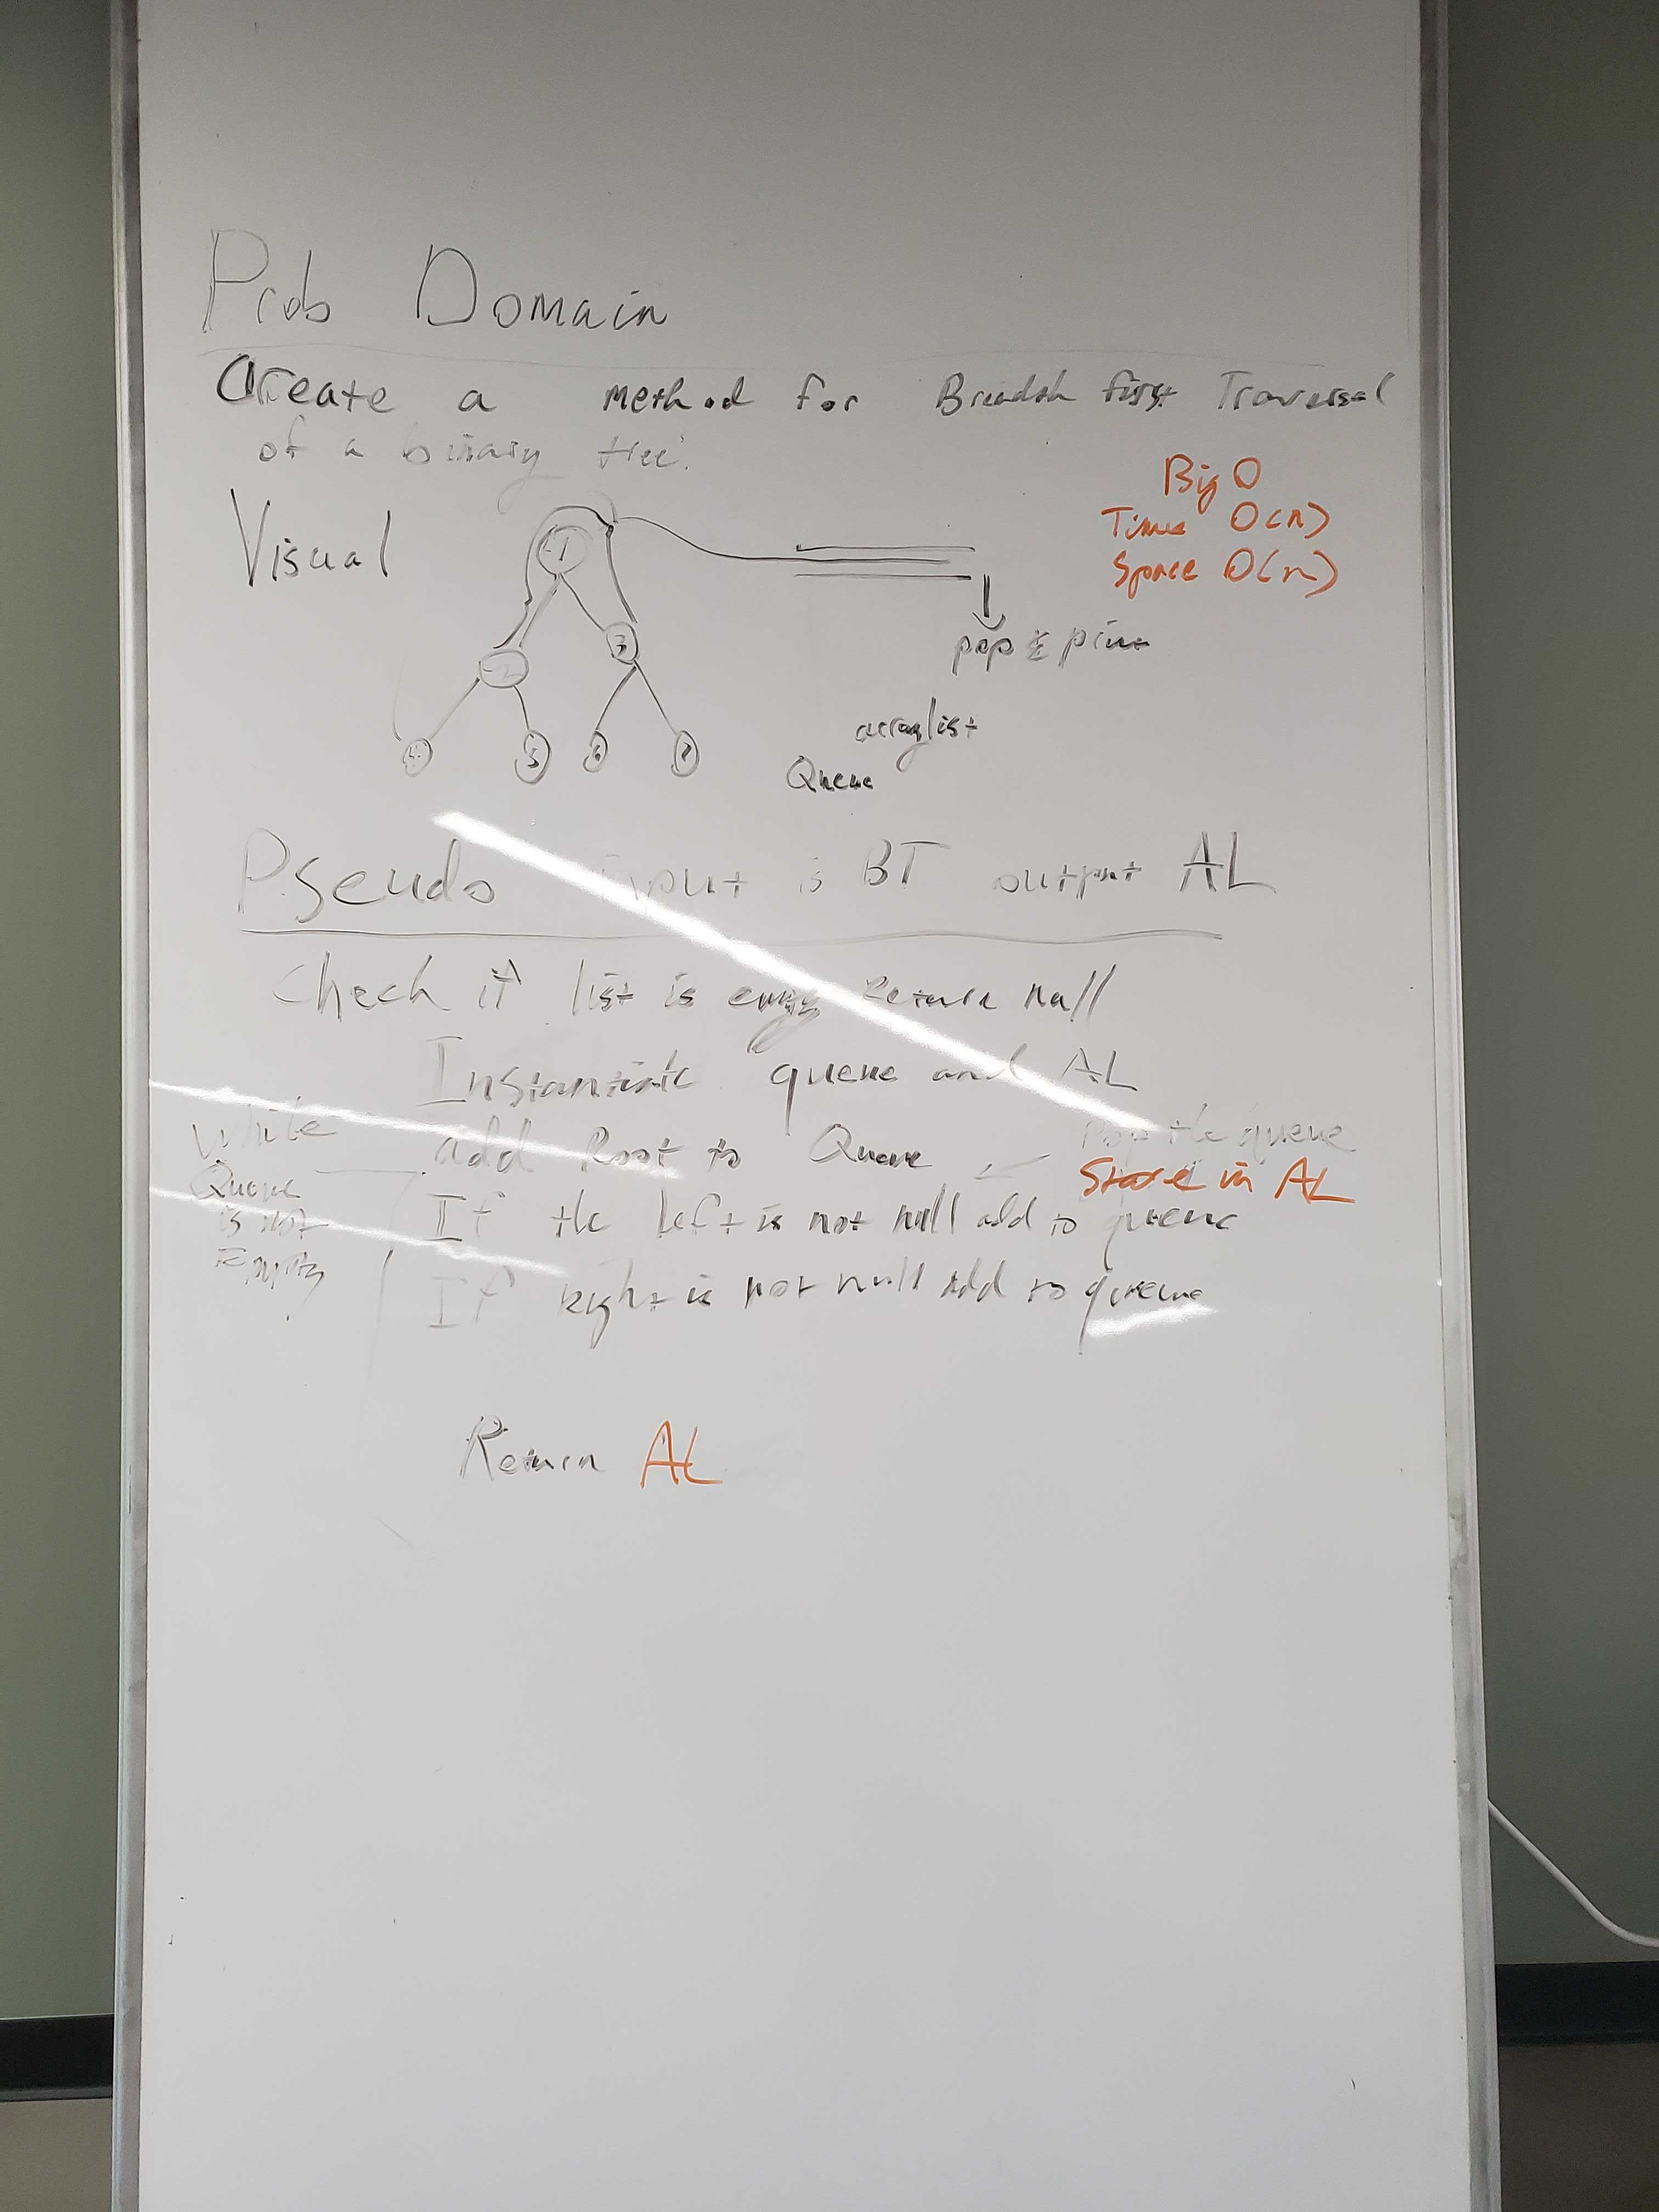 Prob Domain
Create a method for Breadth first Traversal
of a binary tree.
Big O
Time O(n)
Space O(n)
Visual
1
2
3
4
5
6
7
pop & print
arraylist
Queue
Pseudo input is BT output AL
Check if list is empty return null
Instantiate queue and AL
add Root to Queue
Pop the queue
Store in AL
While
Queue
is not
Empty
If the left is not null add to queue
If right is not null add to queue
Return AL